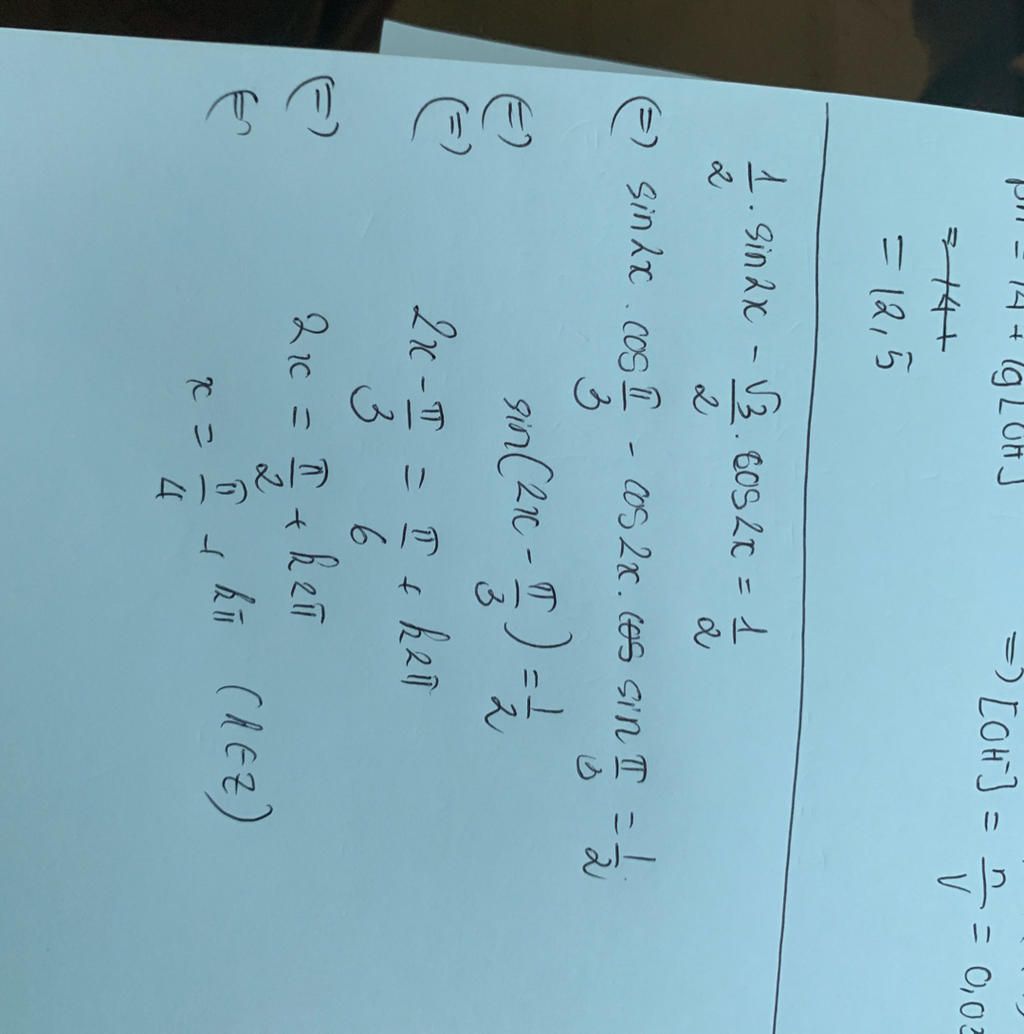 pH = 14 + lg[OH] => [OH⁻] = n/V = 0,03
= 14 +
= 12,5
1/2 . sin2x - √3/2 . cos2x = 1/2
(=) sin2x . cos π/3 - cos2x . cos sin π/3 = 1/2
(=) sin(2x - π/3) = 1/2
(=) 2x - π/3 = π/6 + k2π
(=) 2x = π/2 + k2π
(=) x = π/4 + kπ (k∈Z)